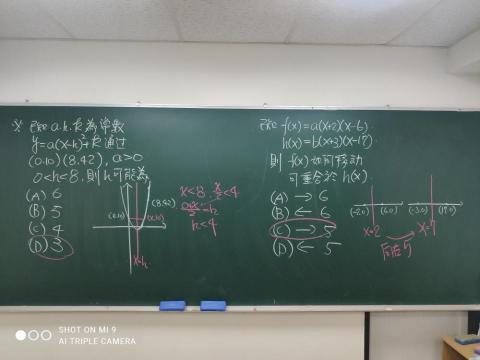 ※ 已知 a.h.k 為常數
y=a(x-h)²+k 通過
(0.10)(8.42), a>0
0<h<8, 則 h 可能為
(A) 6
(B) 5
(C) 4
(D) 3
(0.10)
(8.42)
(x.10)
x=h
x<8, x/2<4
0+x/2=h
h<4
已知 f(x)=a(x+2)(x-6)
h(x)=b(x+3)(x-17)
則 f(x)如何移動
可重合於 h(x)
(A) → 6
(B) ← 6
(C) → 5
(D) ← 5
(-2.0) (6.0)
(-3.0) (17.0)
x=2
x=7
向右5
SHOT ON MI 9
AI TRIPLE CAMERA